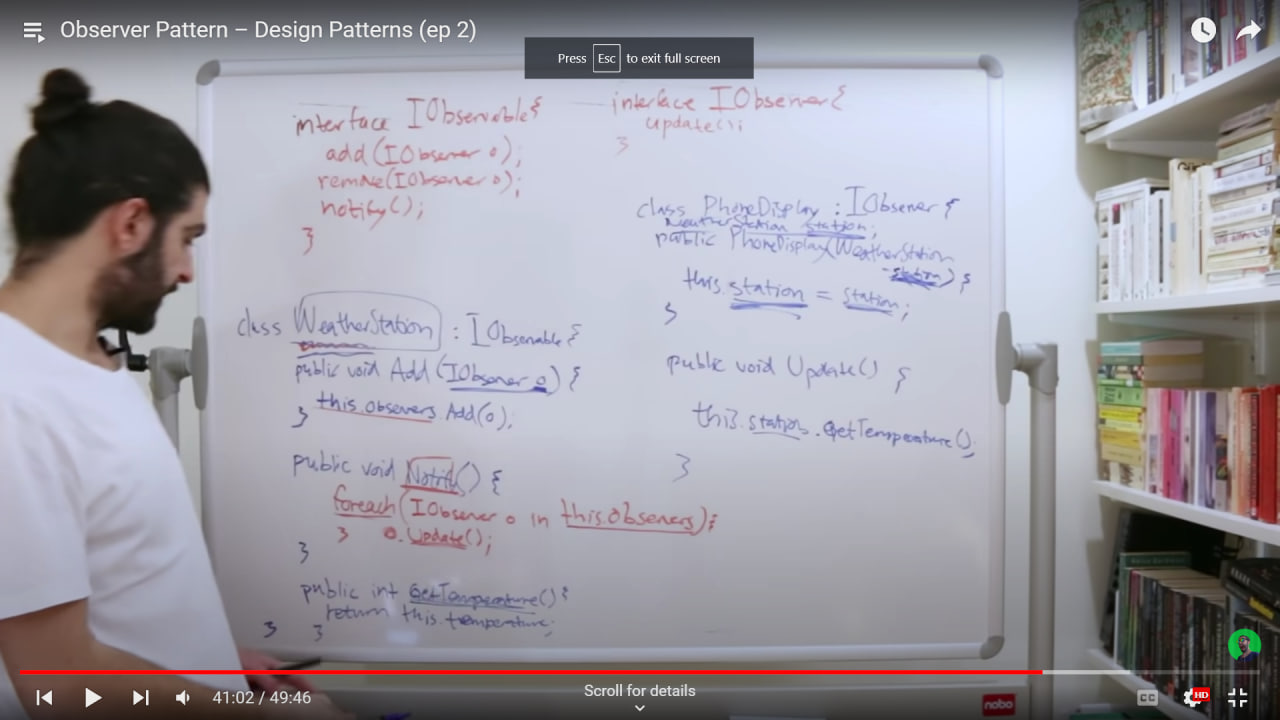 Observer Pattern – Design Patterns (ep 2)
Press Esc to exit full screen
interface IObservable {
add(IObserver o);
remove(IObserver o);
notify();
}
interface IObserver {
update();
}
class WeatherStation : IObservable {
public void Add(IObserver o) {
this.observers.Add(o);
}
public void Notify() {
foreach(IObserver o in this.observers){
o.Update();
}
}
public int GetTemperature(){
return this.temperature;
}
}
class PhoneDisplay : IObserver {
WeatherStation station;
public PhoneDisplay(WeatherStation
station) {
this.station = station;
}
public void Update() {
this.station.GetTemperature();
}
41:02 / 49:46
Scroll for details
CC
HD
nobo